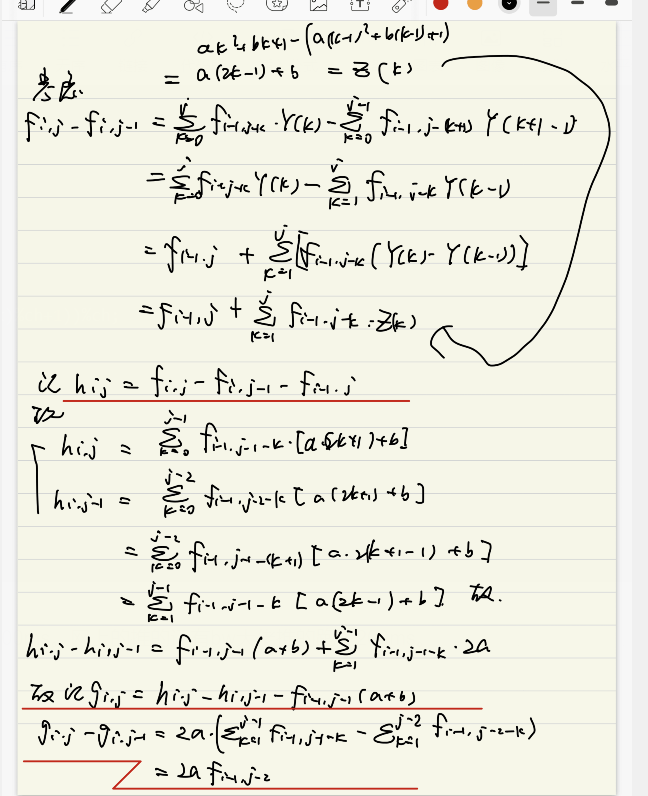 ak²+bk+1-(a(k-1)²+b(k-1)+1)
= a(2k-1)+b = Z(k)
考虑
fi,j-fi,j-1 = Σ_{k=0}^{j} fi-1,j-k·Y(k)-Σ_{k=0}^{j-1} fi-1,j-(k+1) Y(k+1-1)
= Σ_{k=0}^{j} fi-1,j-k Y(k) - Σ_{k=1}^{j} fi-1,j-k Y(k-1)
= fi-1,j + Σ_{k=1}^{j} [fi-1,j-k (Y(k)-Y(k-1))]
= fi-1,j + Σ_{k=1}^{j} fi-1,j-k·Z(k)
记 hi,j = fi,j - fi,j-1 - fi-1,j
hi,j = Σ_{k=0}^{j-1} fi-1,j-1-k·[a(2k+1)+b]
hi,j-1 = Σ_{k=0}^{j-2} fi-1,j-2-k [a(2k+1)+b]
= Σ_{k=0}^{j-2} fi-1,j-1-(k+1) [a·2(k+1-1)+b]
= Σ_{k=1}^{j-1} fi-1,j-1-k [a(2k-1)+b] 故.
hi,j-hi,j-1 = fi-1,j-1(a+b)+Σ_{k=1}^{j-1} fi-1,j-1-k·2a
记 gi,j = hi,j-hi,j-1-fi-1,j-1(a+b)
gi,j-gi,j-1 = 2a·(Σ_{k=1}^{j-1} fi-1,j-1-k - Σ_{k=1}^{j-2} fi-1,j-2-k)
= 2a fi-1,j-2